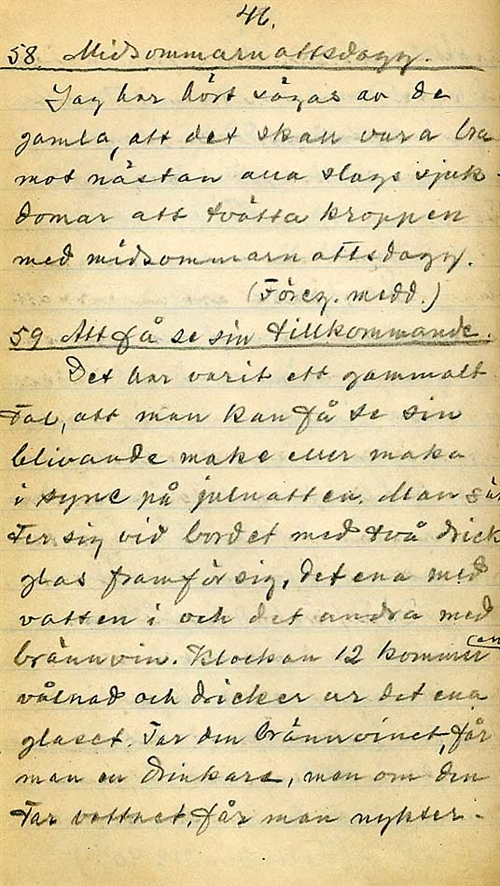 46.
58. Midsommarnattsdagg.
Jag har hört sägas av de
gamla, att det skall vara bra
mot nästan alla slags sjuk-
domar att tvätta kroppen
med midsommarnattsdagg.
(Föreg. medd.)
59 Att få se sin tillkommande.
Det har varit ett gammalt
tal, att man kan få se sin
blivande make eller maka
i syne på julnatten. Man sät
ter sig vid bordet med två drick
glas framför sig, det ena med
vatten i och det andra med
brännvin. Klockan 12 kommer en
vålnad och dricker ur det ena
glaset. Tar den brännvinet, får
man en drinkare, men om den
tar vattnet, får man nykter-